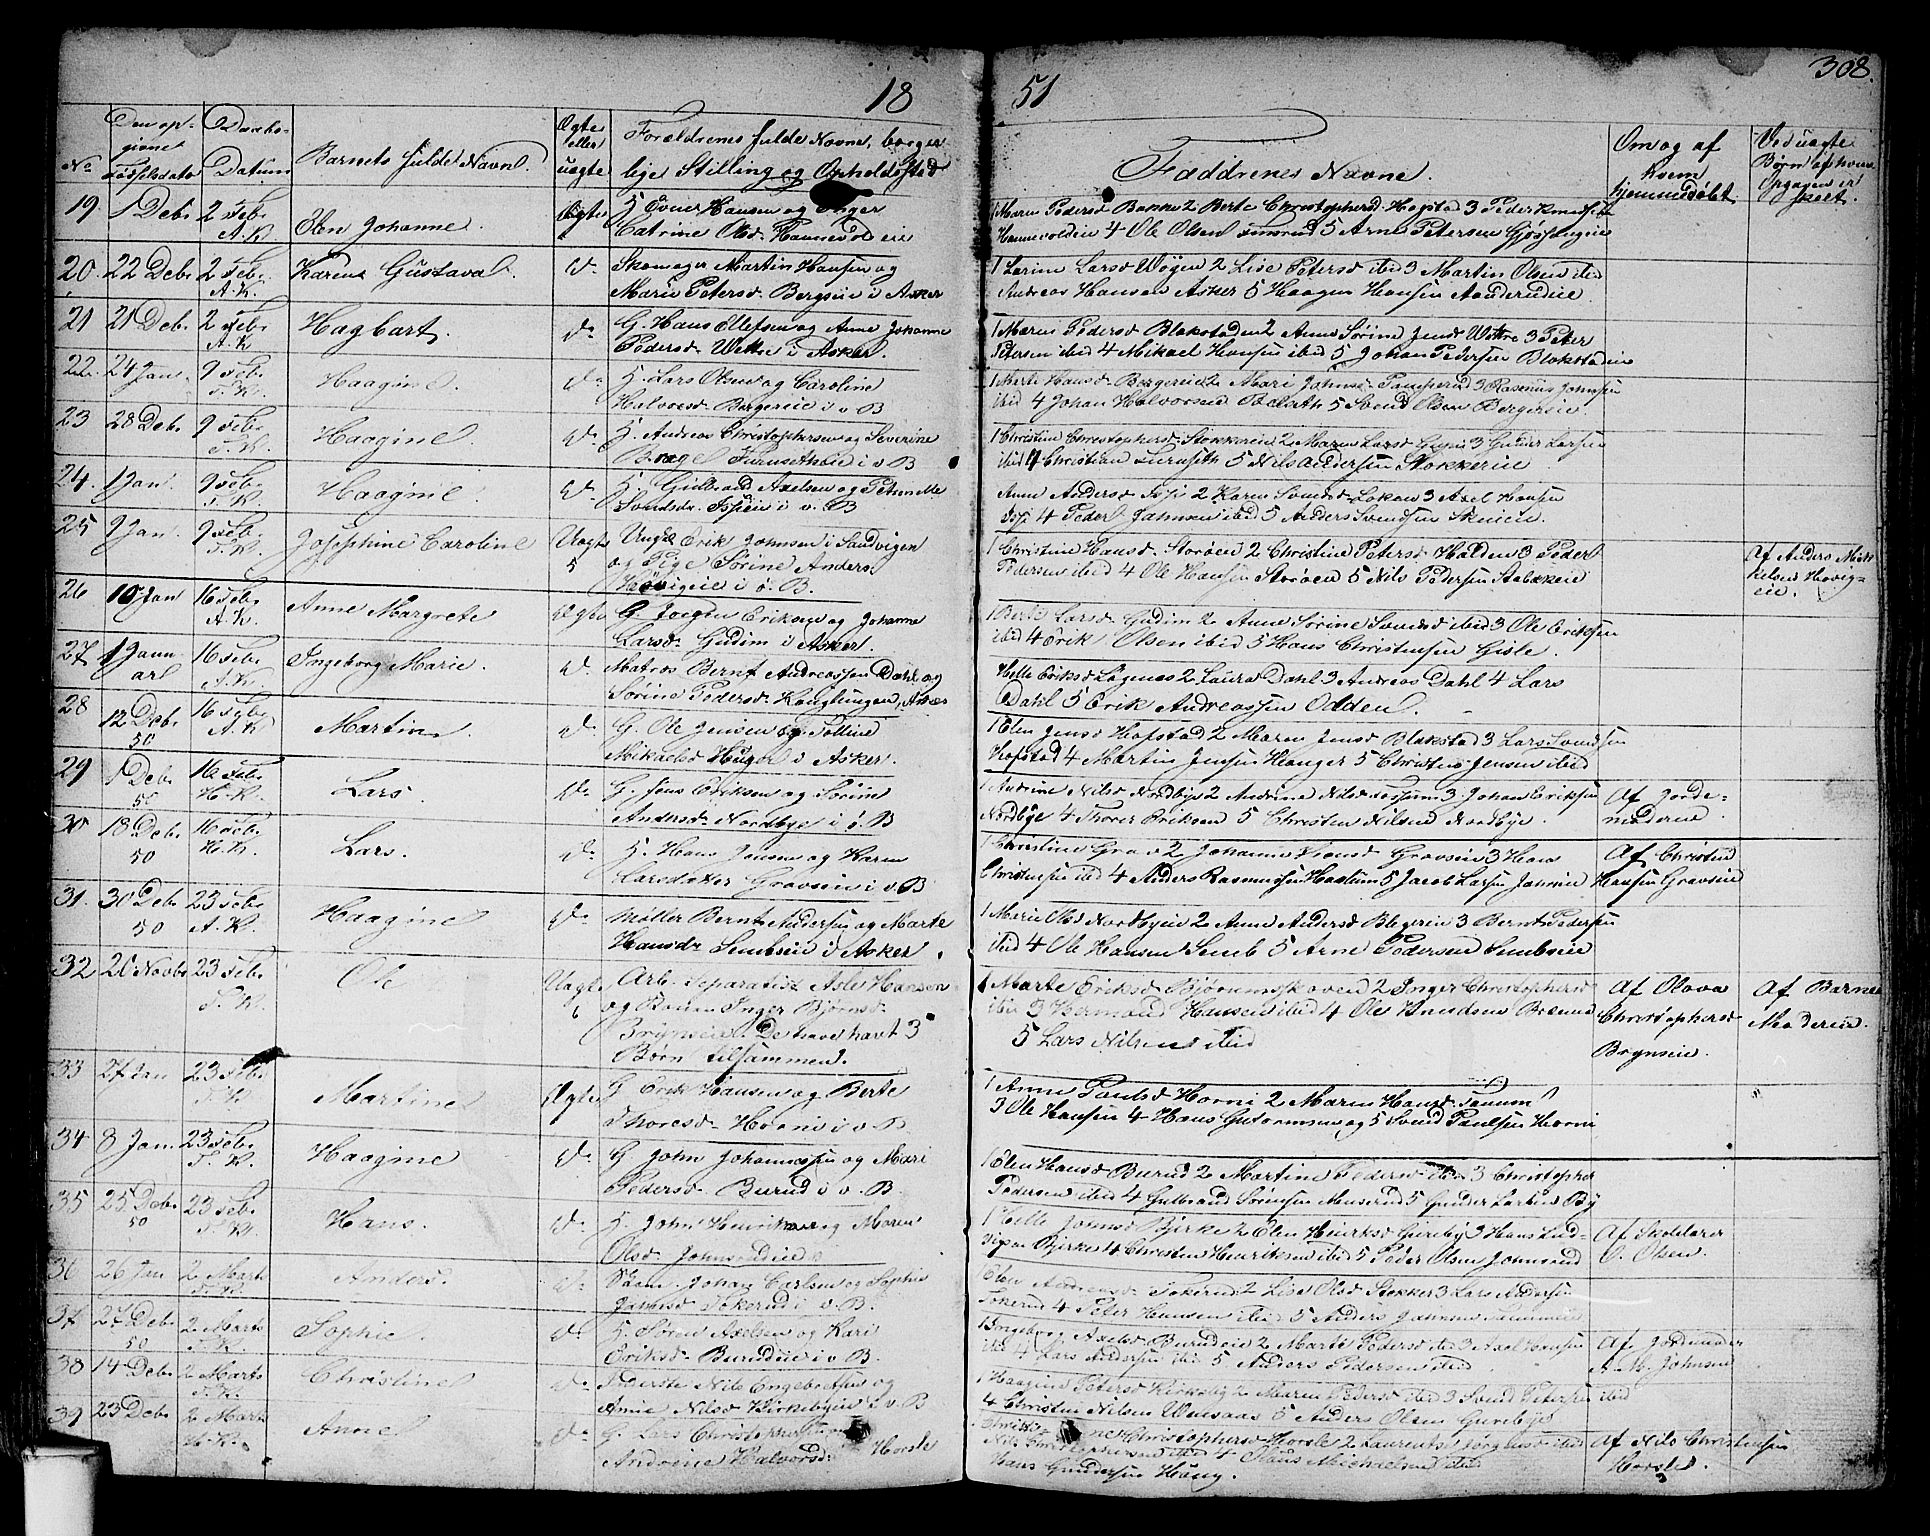 18 51 308.
No
Den op-
givne
Fødselsdato
Daabs-
Datum
Barnets fulde Navn.
Ægte
eller
uægte
Forældrenes fulde Navne, borger
lige Stilling og Opholdssted
Faddrenes Navne.
Om og af
hvem
hjemmedøbt
Ved uægte
Børn af hvem
Opgaven er
skeet.
19. 1 Debr 2 Febr A.K. Elen Johanne. Ægte H. Even Hansen og Inger
Catrine Olsd. Hannevold eie
1 Maren Pedersd Bakke 2 Berte Christophersd Hogstad 3 Peder Knudsen
Hannevoldeie 4 Ole Olsen 5 Arne Petersen Gjøssungeie
20. 22 Debr 2 Febr A.K. Karen Gustava. do Skomager Martin Hansen og
Marie Petersd. Bergseie i Asker
1 Larine Larsd Wøyen 2 Lise Petersd ibid 3 Martin Olsen ibid
Andreas Hansen Asker 5 Haagen Hansen
21 21 Debr 2 Febr A.K Hagbart. do G. Hans Ellefsen og Anne Johanne
Pedersd. Wettre i Asker.
1 Maren Pedersd Blakstad en 2 Anne Sørine Jensd Wettre 3 Peter
Petersen ibid 4 Mikael Hansen ibid 5 Johan Pedersen Blakstadeie
22. 24 Jan 9 Febr T.K. Haagine. do H. Lars Olsen og Caroline
Halvorsd. Bergereie i v. B
1 Merte Hansd. Bergereie 2 Mari Johnsd. Tamperud 3 Rasmus Johnsen
ibid 4 Johan Halvorsen 5 Svend Olsen Bergereie.
23 28 Debr 9 Febr T.K. Haagine. do H. Andreas Christophersen og Severine
Furusetheie i v B
1 Christine Christophersd Stokkereie 2 Maren Larsd 3 Gunder Larsen
ibid 4 Christian Furuseth 5 Nils Andersen Stokkereie
24. 1 Jan 9 Febr T.K. Haagine. do H. Gulbrand Axelsen og Petronelle
Svendsdr. Isieie i v. B
Anne Andersd Isi 2 Karen Svendsd Løken 3 Axel Hansen
Isi 4 Peder Johnsen ibid 5 Anders Svendsen Skuieie.
25 9 Jan. 9 Febr T.K. Josephine Caroline Uægte 5 Ungk Erik Johnsen i Sandvigen
og Pige Sørine Anders.
Høvigeie i ø. B.
1 Christine Hansd. Storøen 2 Christine Petersd Holden 3 Peder
Pedersen ibid 4 Ole Hansen Storøen 5 Nils Pedersen Stabækeie
Af Anders Mik
kelsen Høvig-
eie.
26 10 Jan 16 Febr A.K. Anne Margrete Ægte G. Jørgen Eriksen og Johanne
Larsd. Gudim i Asker.
1 Berte Larsd. Gudim 2 Anne Sørine Svendsd ibid 3 Ole Eriksen
ibid 4 Erik Olsen ibid 5 Hans Christensen Gisle.
27 1 Janu-
ar 16 Febr A.K. Ingeborg Marie. do Matros Bernt Andreassen Dahl og
Sørine Pedersd. Konglungen, Asker
Helle Eriksd Løgenæs 2 Laura Dahl 3 Andreas Dahl 4 Lars
Dahl 5 Erik Andreassen Odden.
28 12 Debr 50 16 Febr A.K. Martin. do G. Ole Jensen og Pelline
Mikaelsd i Asker.
1 Elen Jensd Hofstad 2 Maren Jensd Blakstad 3 Lars Svendsen
Hofstad 4 Martin Jensen Hanger 5 Christen Jensen ibid
29 1 Debr 50 16 Febr H.K. Lars. do G. Jens Eriksen og Sørine
Andersd. Nordbye i ø. B
1 Andrine Nilsd Nordbye 2 Andrine Nilsd Fossum 3 Johan Eriksen
Nordbye 4 Thorer Eriksen 5 Christen Nilsen Nordbye.
Af Jorde-
moderen
30 18 Debr 50 16 Febr H.K. Lars. do H. Hans Jensen og Karen
Larsdatter Gravseie i v B
1 Christine Grav 2 Johanne Gravseie 3 Hans
Christensen ibid 4 Anders Rasmussen Haslum 5 Jacob Larsen
Af Christen
Hansen Gravseie
31. 30 Debr 50 23 Febr A.K. Haagine do Møller Bernt Andersen og Marte
Hansdr Sembseie i Asker.
1 Marie Olsd Nordbyeie 2 Anne Andersd Blegereie 3 Bernt Pedersen
ibid 4 Ole Hansen Semb 5 Arne Pedersen Sembseie
32 20 Novbr 23 Febr T.K. Ole Uægte 6 Arb. Separatist Asle Hansen
og Konen Inger Bjørnsd.
Brynseie De have havt 3
Børn tilsammen.
1 Marte Eriksd Bjørnmoskoven 2 Inger Christophersd
ibid 3 Hermand Hansen ibid 4 Ole Knudsen
5 Lars Nilsen ibid
Af Olova
Christophersd
Brynseie.
Af Barnets
Moderen.
33 27 Jan 23 Febr T.K. Martine Ægte G Erik Hansen og Berte
Thoresd. Horni i v. B
1 Anne Paulsd Horni 2 Maren Hansd Tanum
3 Ole Hansen 4 Hans Guttormsen og 5 Svend Paulsen Horni
34 8 Jan. 23 Febr T.K. Haagine do G John Johannessen og Mari
Pedersd. Burud i v. B.
1 Elen Hansd Burud 2 Martine Pedersd ibid 3 Christopher
Pedersen ibid 4 Gulbrand Sørensen 5 Gunder Larsen By
35 25 Debr 50 23 Febr T.K. Hans. do H. John Henriksen og Maren
Olsd. Johnsrudeie
1 Helle Johnsd Bjerke 2 Elen Henriksd Gureby 3 Hans Lud-
vigsen Bjerke 4 Christen Henriksen ibid 5 Peder Olsen Johnsrud
Af Skolelærer
O. Olsen.
36 26 Jan 2 Marts T.K. Anders. do Johan Carlsen og Sophie
Jensd. Tokerud i v. B.
Elen Andreasd. Tokerud 2 Lise Olsd Stokker 3 Lars Andersen
Tokerud 4 Peter Hansen ibid 5 Anders Johnsen
37 27 Debr 50 2 Marts T.K. Sophie. do H. Søren Axelsen og Kari
Eriksd. Burudeie i v B.
1 Ingeborg Axelsd. Burudeie 2 Marte Pedersd ibid 3 Axel Hansen
ibid 4 Lars Andersen ibid 5 Anders Pedersen ibid
Af Jordmoder
A. M. Johnsen
38 14 Debr 2 Marts T.K. Christine do Inderste Nils Engebretsen og
Anne Nilsd Kirkebyeie i v B
1 Haagine Petersd Kirkeby 2 Maren Pedersd ibid 3 Svend Petersen ibid
4 Christen Nilsen 5 Anders Olsen Gurebye
39 23 Debr 2 Marts H.K. Anne do G. Lars Christophersen
Andrine Halvorsd. Horsle
Christophersd Horsle 2 Laurentse Jørgensd ibid
Nils Christophersen ibid 4 Hans Michaelsen ibid
Hans Gundersen Haug.
Af Nils Christensen
Horsle.